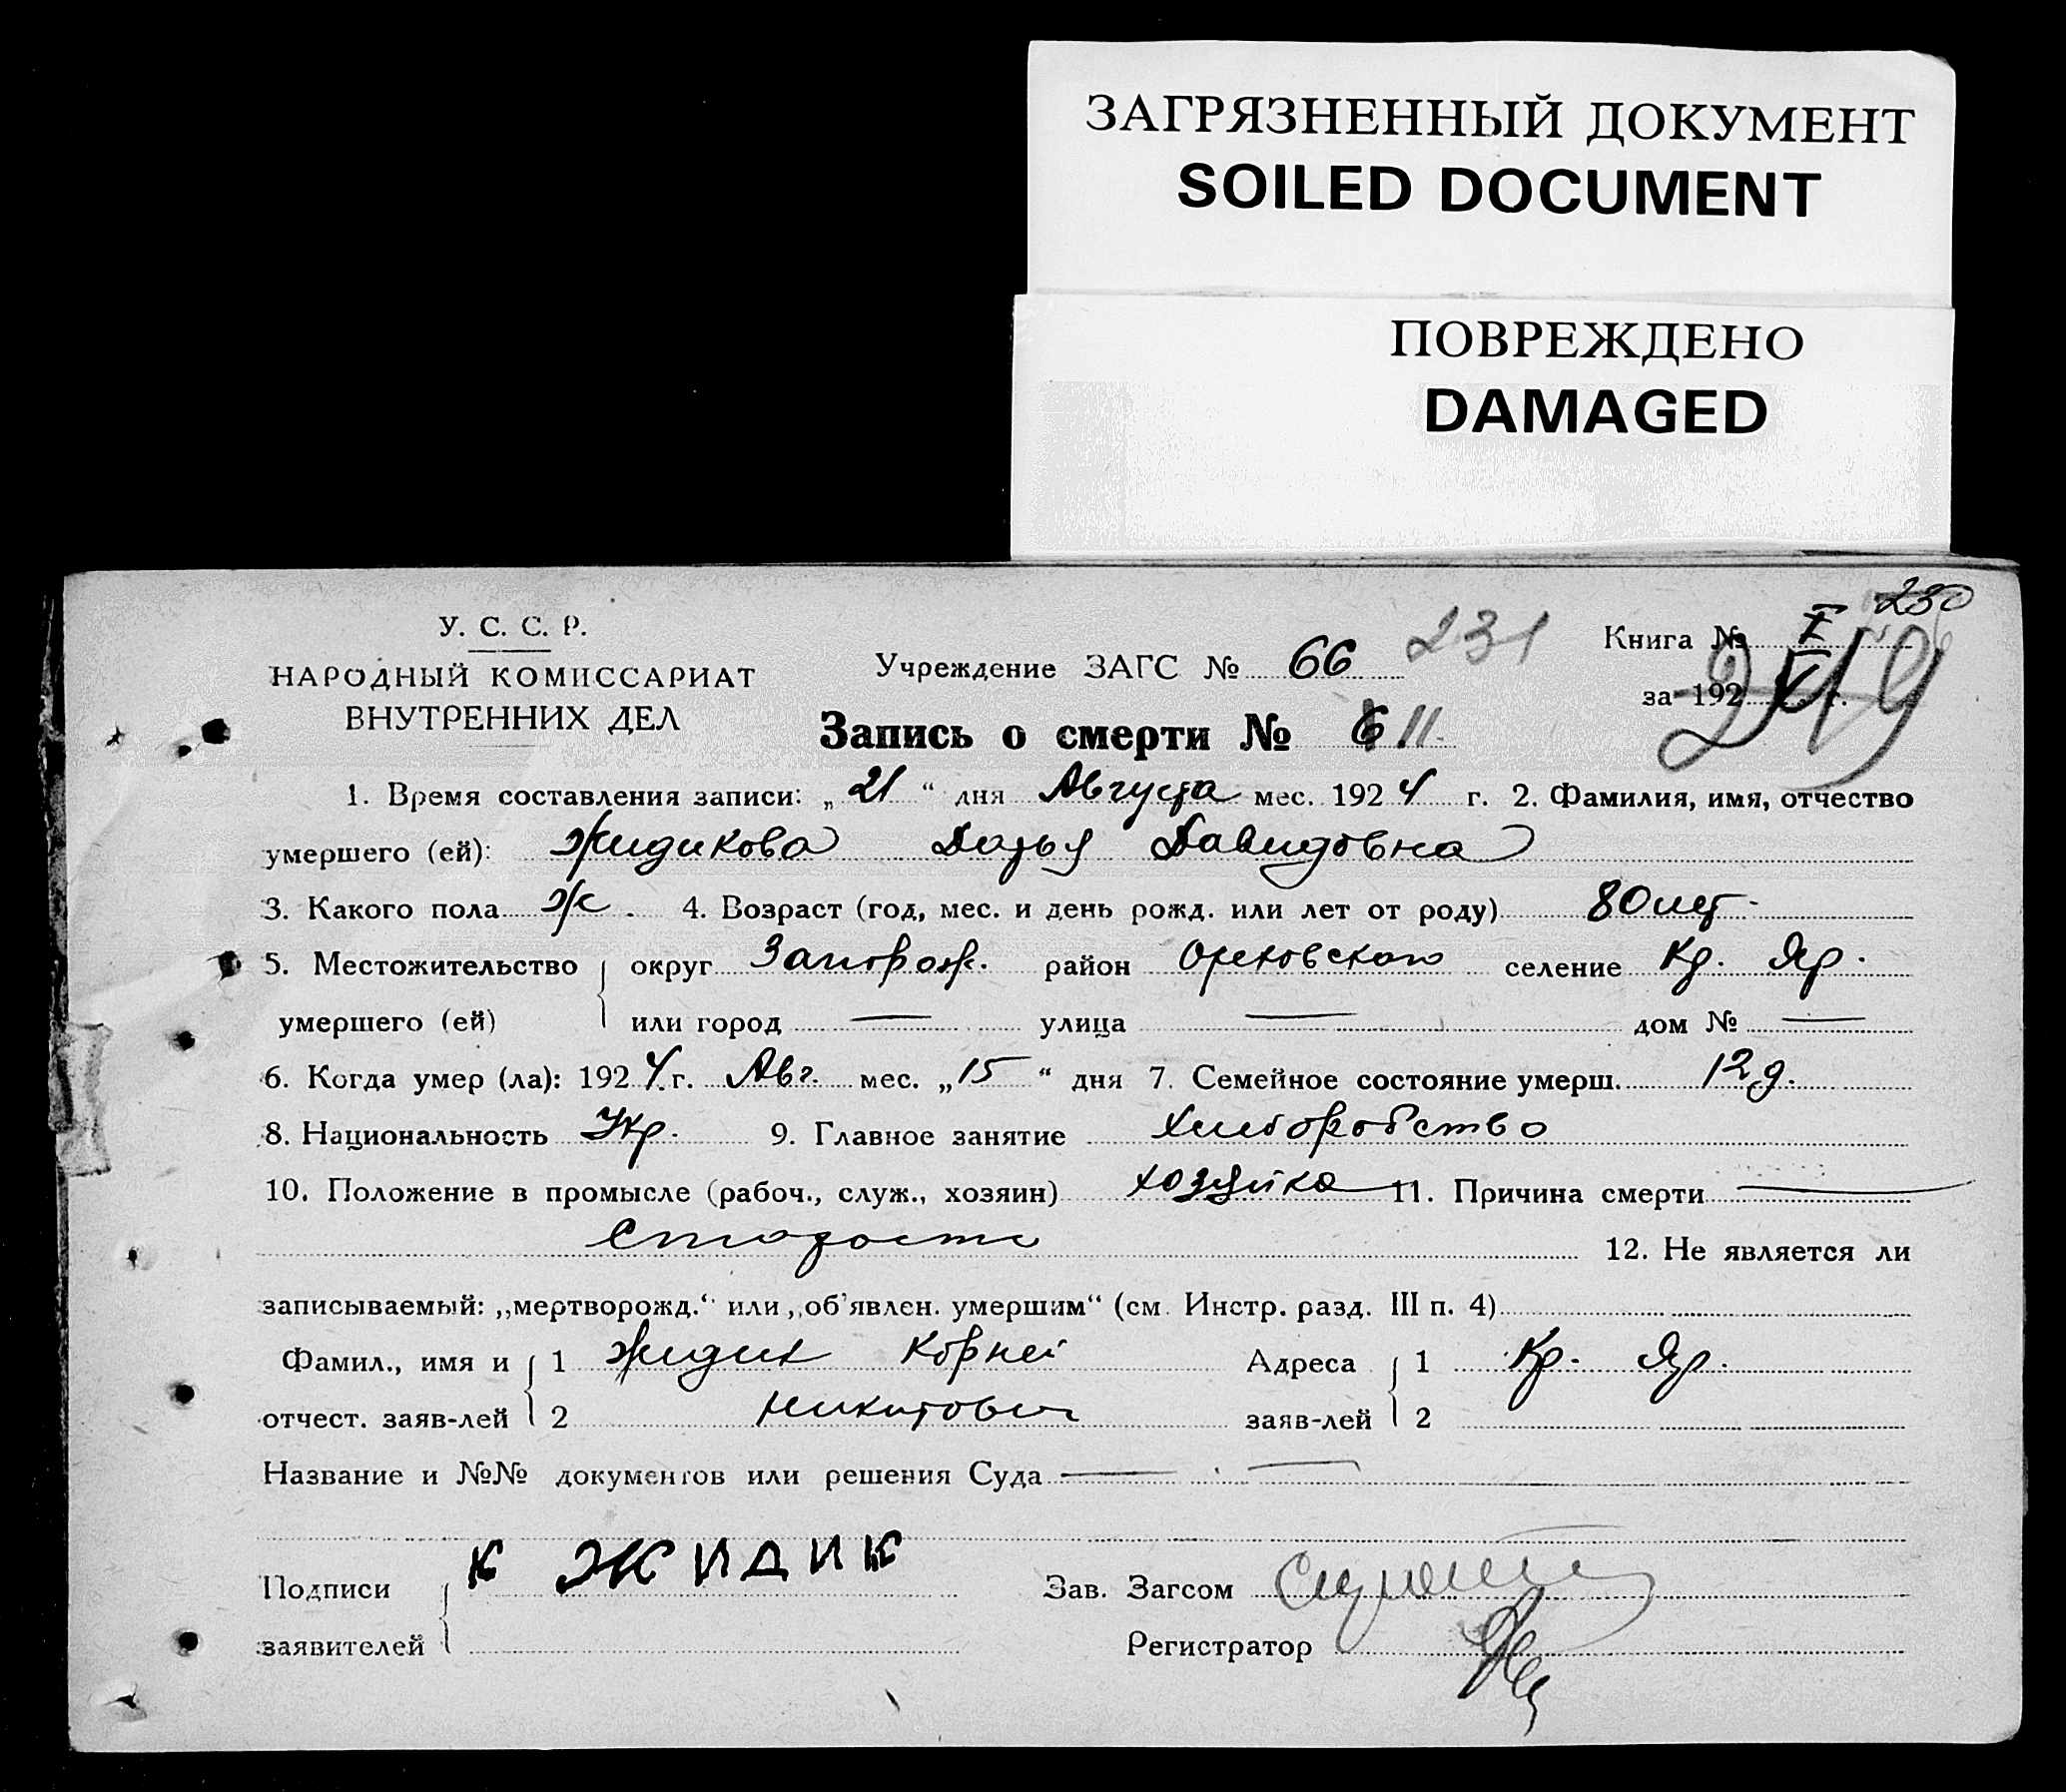 ЗАГРЯЗНЕННЫЙ ДОКУМЕНТ
SOILED DOCUMENT
ПОВРЕЖДЕНО
DAMAGED
230
У. С. С. Р.
НАРОДНЫЙ КОМИССАРИАТ
ВНУТРЕННИХ ДЕЛ
Учреждение ЗАГС № 66 231
Книга № I
за 192 г.
219
Запись о смерти № 11
1. Время составления записи: „21“ дня Августа мес. 1924 г. 2. Фамилия, имя, отчество
умершего (ей): Жидикова Дарья Давидовна
3. Какого пола ж. 4. Возраст (год, мес. и день рожд. или лет от роду) 80 лет
5. Местожительство округ Запорож. район Ореховского селение Кр. Яр.
умершего (ей) или город — улица — дом № —
6. Когда умер (ла): 1924 г. Авг. мес. „15“ дня 7. Семейное состояние умерш. 12 д.
8. Национальность Укр. 9. Главное занятие Хлиборобство
10. Положение в промысле (рабоч., служ., хозяин) хозяйка 11. Причина смерти —
Старости
12. Не является ли
записываемый: „мертворожд.“ или „об'явлен. умершим“ (см. Инстр. разд. III п. 4)
Фамил., имя и 1 Жидик Корней Адреса 1 Кр. Яр.
отчест. заяв-лей 2 Никитович заяв-лей 2
Название и №№ документов или решения Суда — —
Подписи К ЖИДИК Зав. Загсом
заявителей Регистратор